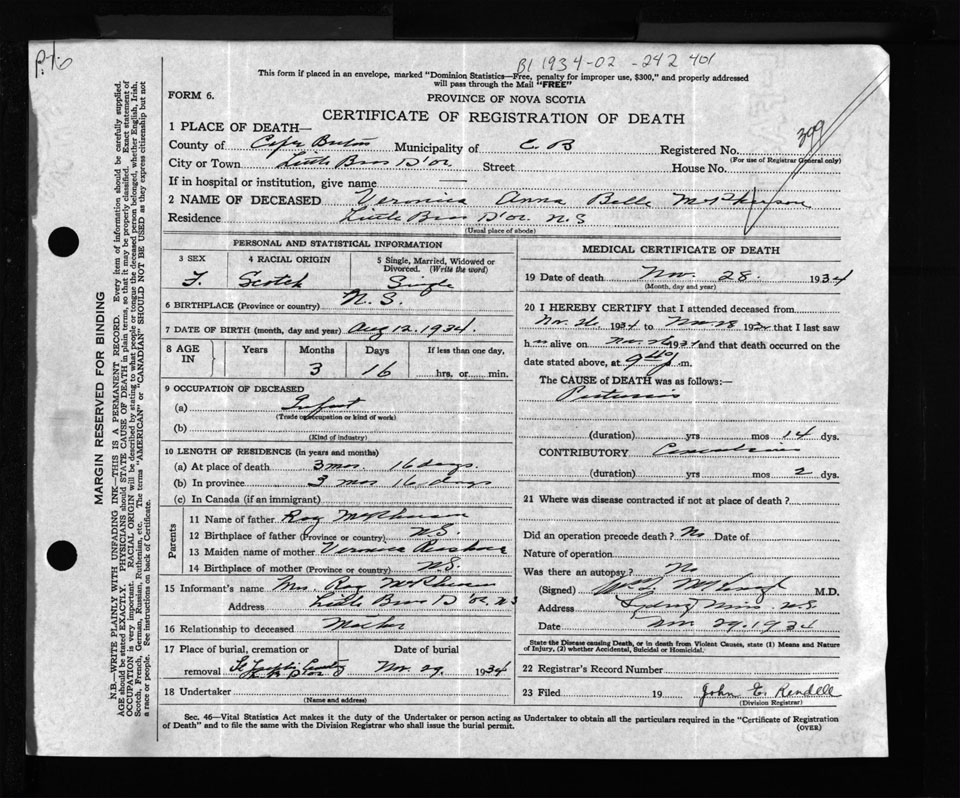 P.T.O
B1 1934-02 -242 401
This form if placed in an envelope, marked "Dominion Statistics—Free, penalty for improper use, $300," and properly addressed
will pass through the Mail "FREE"
FORM 6.
PROVINCE OF NOVA SCOTIA
CERTIFICATE OF REGISTRATION OF DEATH
399
1 PLACE OF DEATH—
County of Cape Breton Municipality of C. B Registered No.
(For use of Registrar General only)
City or Town Little Bras D'or Street House No.
If in hospital or institution, give name
2 NAME OF DECEASED Veronica Anna Belle McPherson
Residence Little Bras D'or N.S
(Usual place of abode)
PERSONAL AND STATISTICAL INFORMATION
3 SEX 4 RACIAL ORIGIN 5 Single, Married, Widowed or
Divorced. (Write the word)
F. Scotch Single
6 BIRTHPLACE (Province or country) N. S.
7 DATE OF BIRTH (month, day and year) Aug 12. 1934.
8 AGE IN Years Months Days If less than one day,
3 16 hrs. or min.
9 OCCUPATION OF DECEASED
(a) Infant
(Trade or occupation or kind of work)
(b)
(Kind of industry)
10 LENGTH OF RESIDENCE (in years and months)
(a) At place of death 3 mos. 16 days.
(b) In province 3 mos 16 days
(c) In Canada (if an immigrant)
Parents
11 Name of father Roy McPherson
12 Birthplace of father (Province or country) N.S.
13 Maiden name of mother Veronica
14 Birthplace of mother (Province or country) N.S.
15 Informant's name Mrs Roy McPherson
Address Little Bras D'or. N S
16 Relationship to deceased Mother
17 Place of burial, cremation or Date of burial
removal St Joseph's Nov. 29. 1934
18 Undertaker
(Name and address)
MEDICAL CERTIFICATE OF DEATH
19 Date of death Nov. 28. 1934
(Month, day and year)
20 I HEREBY CERTIFY that I attended deceased from
Nov. 26 1934 to Nov 28 1934 that I last saw
h er alive on Nov. 26 1934 and that death occurred on the
date stated above, at 9 40 m.
The CAUSE of DEATH was as follows:—
Pertussis
(duration) yrs mos 14 dys.
CONTRIBUTORY Convulsions
(duration) yrs mos 2 dys.
21 Where was disease contracted if not at place of death ?
Did an operation precede death ? No Date of
Nature of operation
Was there an autopsy ? No
(Signed) M.D.
Address Sydney Mines N.S
Date Nov. 29. 1934
State the Disease causing Death, or in death from Violent Causes, state (1) Means and Nature
of Injury, (2) whether Accidental, Suicidal or Homicidal.
22 Registrar's Record Number
23 Filed 19 John E. Rendell
(Division Registrar)
Sec. 46—Vital Statistics Act makes it the duty of the Undertaker or person acting as Undertaker to obtain all the particulars required in the "Certificate of Registration
of Death" and to file the same with the Division Registrar who shall issue the burial permit. (OVER)
MARGIN RESERVED FOR BINDING
N.B.—WRITE PLAINLY WITH UNFADING INK—THIS IS A PERMANENT RECORD. Every item of information should be carefully supplied.
AGE should be stated EXACTLY. PHYSICIANS should STATE CAUSE OF DEATH in plain terms, so that it may be properly classified. Exact statement of
OCCUPATION is very important. RACIAL ORIGIN will be described by stating to what people or tongue the deceased person belonged, whether English, Irish,
Scotch, French, German, Russian, Ruthenian, etc. The terms "AMERICAN" or "CANADIAN" SHOULD NOT BE USED as they express citizenship but not
a race or people. See instructions on back of Certificate.